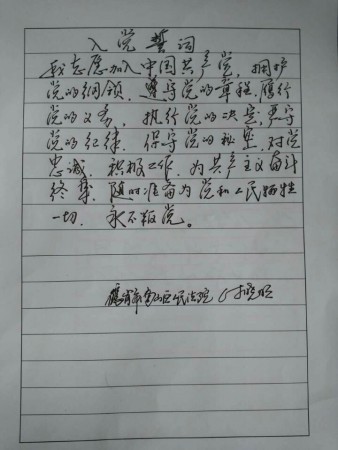 入党誓词
我志愿加入中国共产党，拥护
党的纲领，遵守党的章程，履行
党的义务，执行党的决定，严守
党的纪律，保守党的秘密，对党
忠诚，积极工作，为共产主义奋斗
终身，随时准备为党和人民牺牲
一切，永不叛党。
鹤岗市南山区人民法院